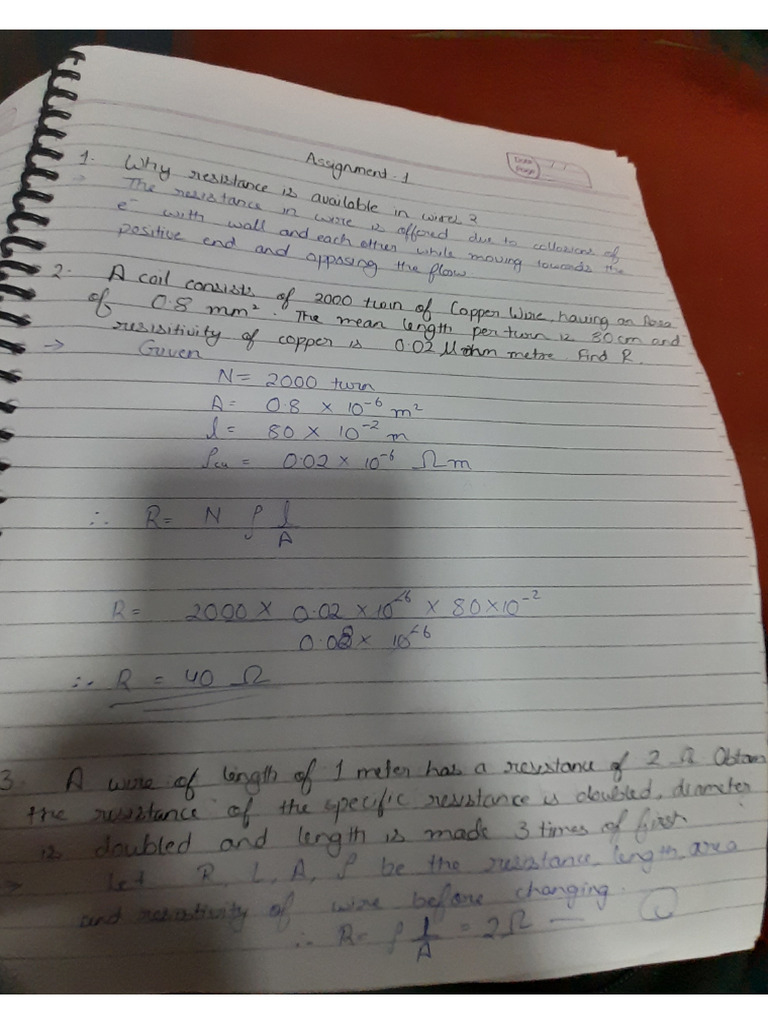 Assignment-1
Date
Page
1. Why resistance is available in wire?
→ The resistance in wire is offered due to collosions of
e⁻ with wall and each other while moving towards the
positive end and opposing the flow.
2. A coil consists of 2000 turn of Copper Wire, having an Area
of 0.8 mm². The mean length per turn is 80cm and
resisitivity of copper is 0.02 μ ohm metre. Find R.
→ Given
N = 2000 turn
A = 0.8 × 10⁻⁶ m²
l = 80 × 10⁻² m
ρcu = 0.02 × 10⁻⁶ Ω m
∴ R = N ρ l/A
R = 2000 × 0.02 × 10⁻⁶ × 80 × 10⁻²
0.08 × 10⁻⁶
∴ R = 40 Ω
3. A wire of length of 1 meter has a resistance of 2 Ω Obtain
the resistance of the specific resistance is doubled, diameter
is doubled and length is made 3 times of first.
→ Let R, L, A, ρ be the resistance, length, area
and resistivity of wire before changing.
∴ R = ρ l/A = 2Ω —